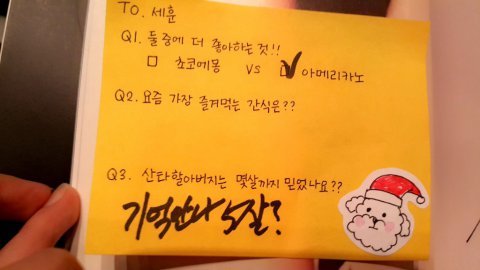 TO. 세훈
Q1. 둘중에 더 좋아하는 것!!
□ 쵸코에몽 VS ☑ 아메리카노
Q2. 요즘 가장 즐겨먹는 간식은??
Q3. 산타할아버지는 몇살까지 믿었나요??
기억안나 5살?